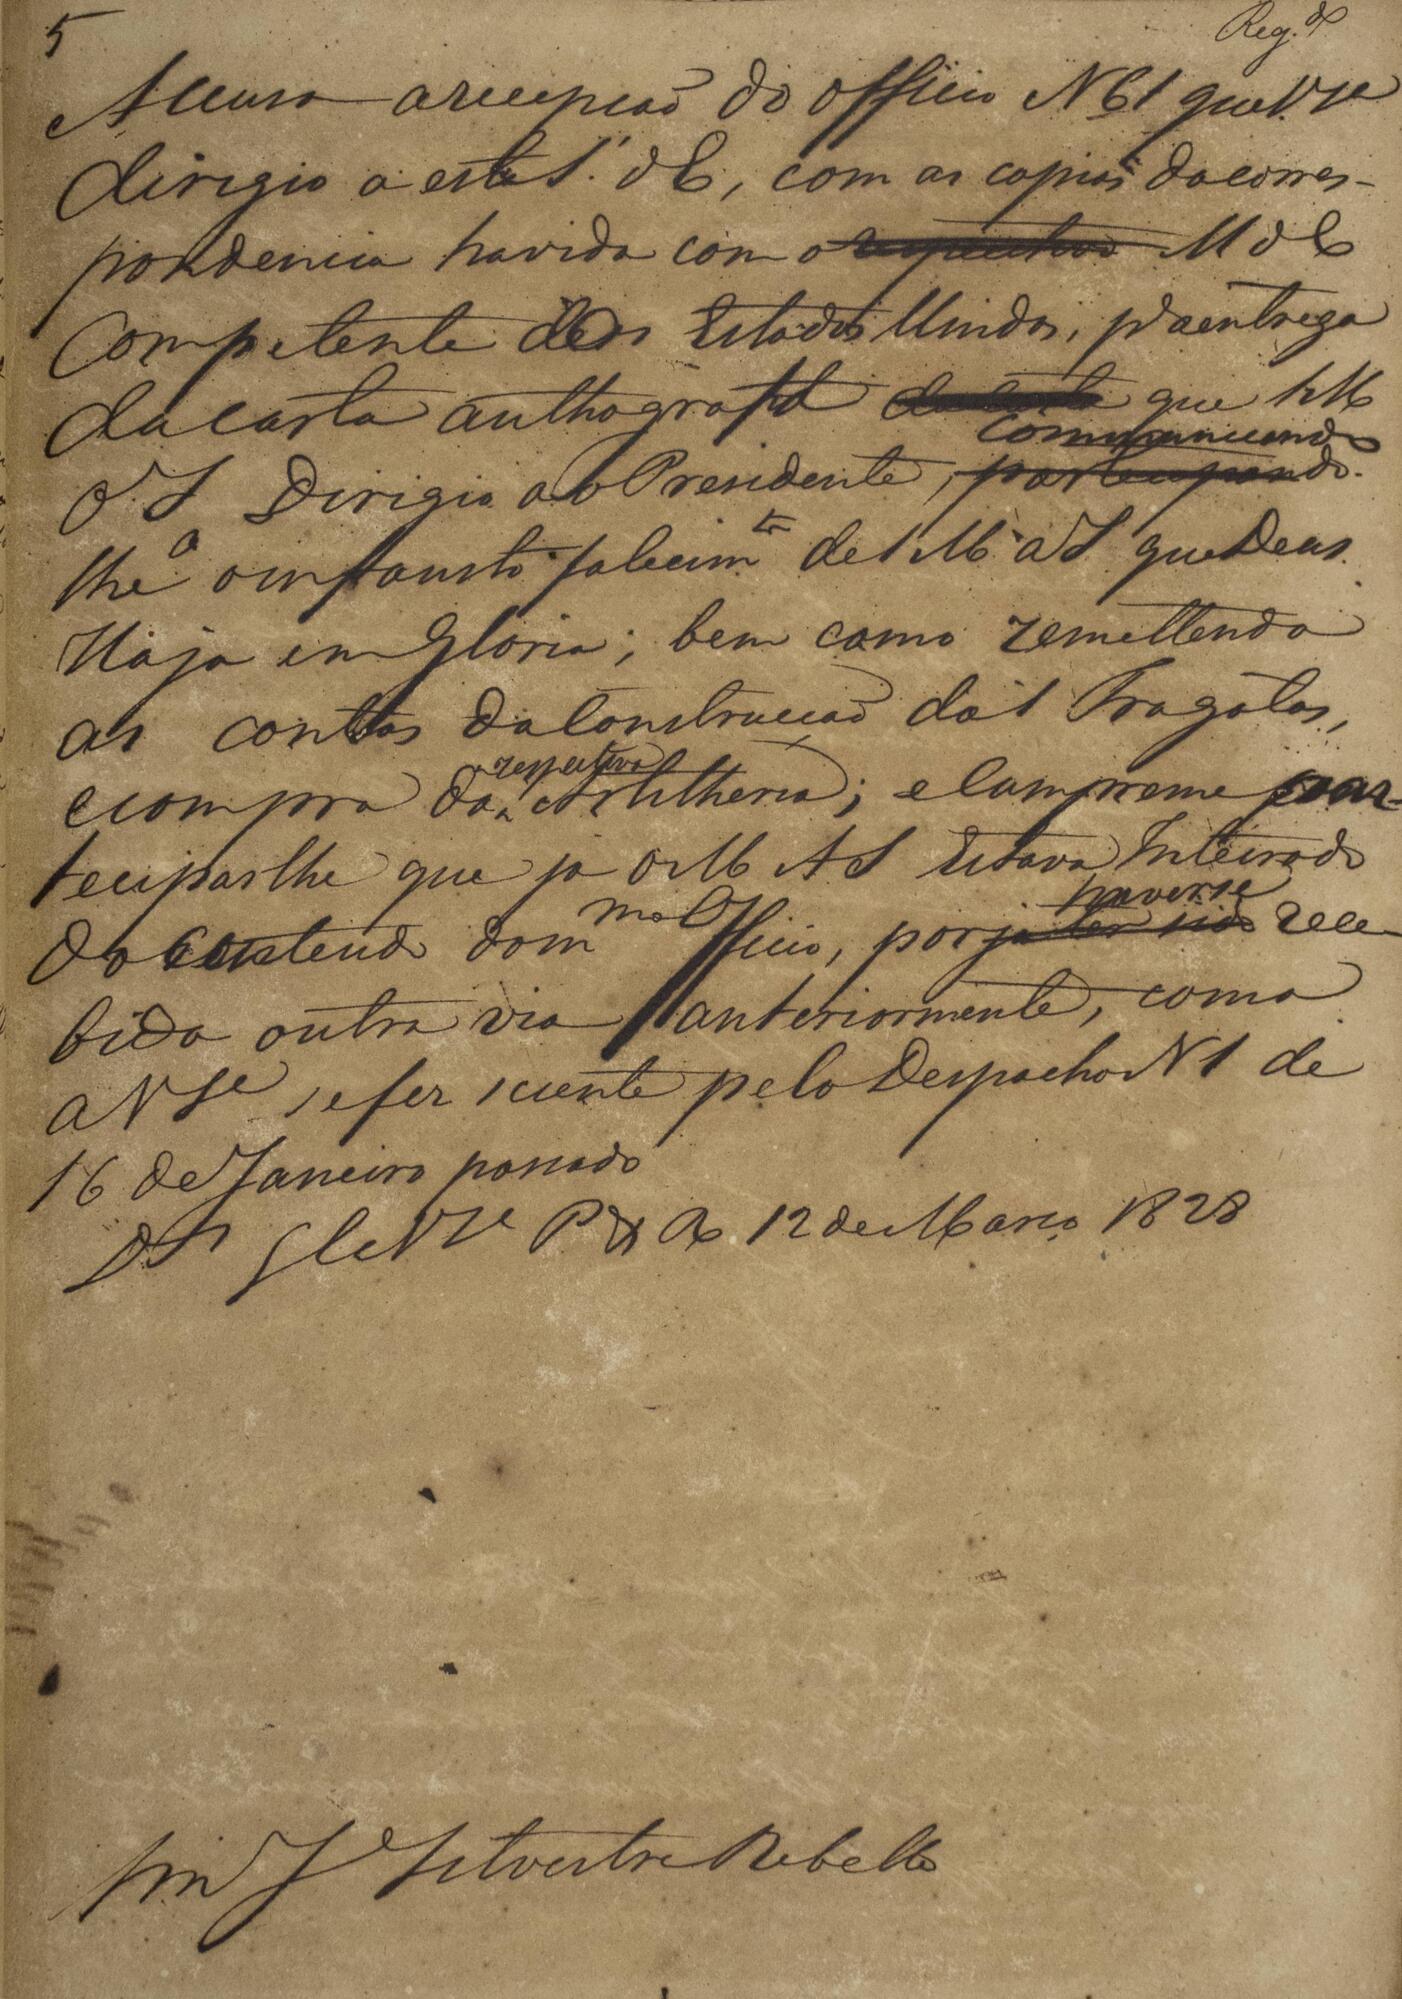 5 Reg.do
Accuso a recepção do officio N 61 que V Sa
dirigio a esta S. d E, com as copias da corres-
pondencia havida com o respectivo M d E
Competente dos Estados Unidos, pa a entrega
da carta authographa que S M
communicando
O I Dirigio ao Presidente, participando.
lhe o infausto falecimto de S M a I que Deus
Haja em Gloria; bem como remettendo
as contas da Construcção das Fragatas,
respectiva
e compra da Artilheria; e cumpreme par-
teciparlhe que ja S M O I Estava Inteirado
haverse
do contendo do mmo Officio, por ja ter sido rece-
bido outra via anteriormente, como
a V Sa se fez sciente pelo Despacho N 1 de
16 de Janeiro passado
Ds Gde V Sa P em 12 de Março 1828
Snr Je Silvestre Rebello